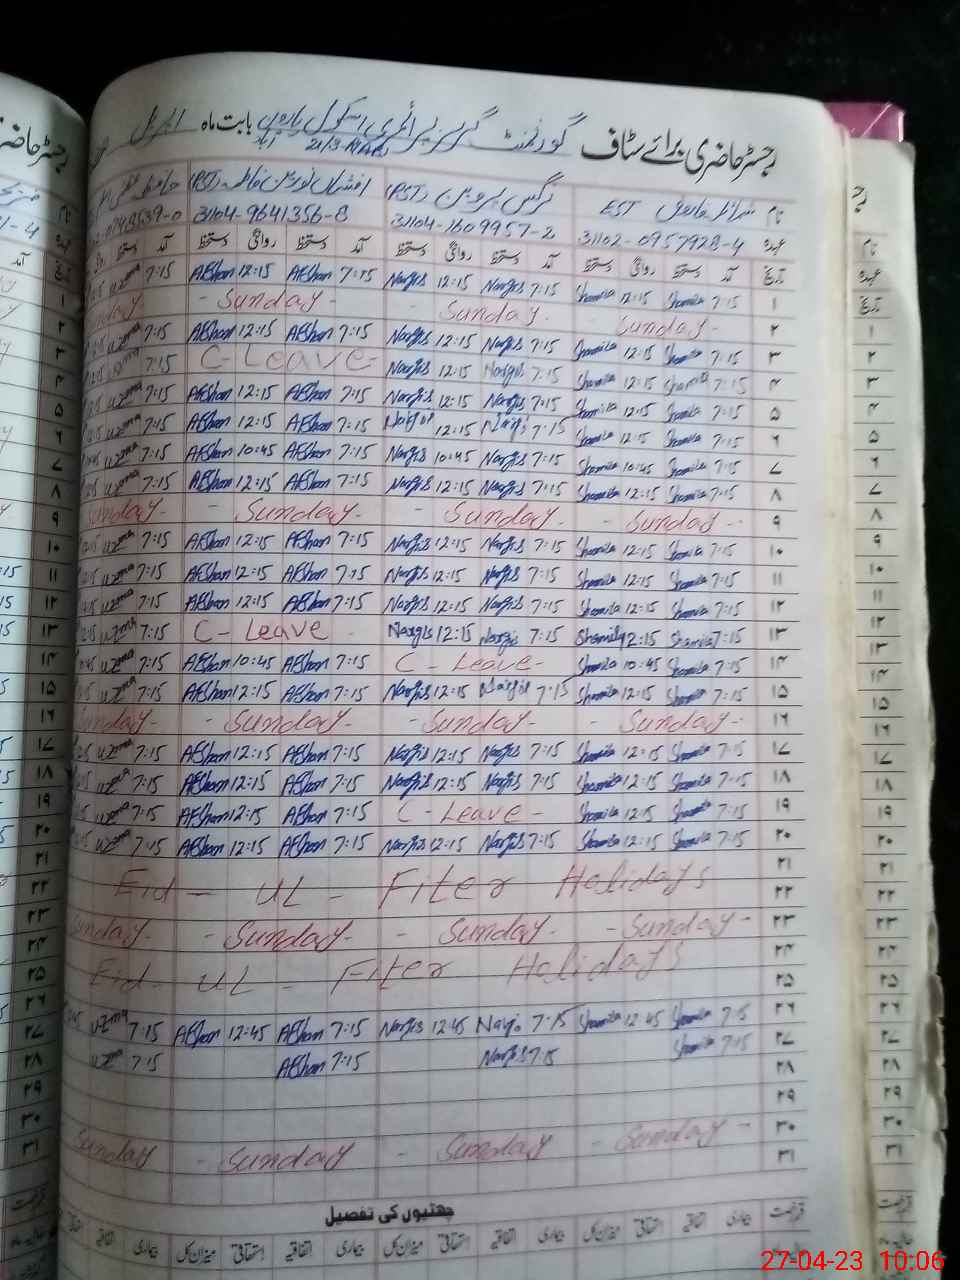 رجسٹر حاضری برائے سٹاف گورنمنٹ گرلز پرائمری اسکول بابت ماہ اپریل
نام EST نرگس پروین (PST) (PST)
عہدہ 31102-0957928-4 31104-1609957-2 31104-9641356-8
تاریخ آمد دستخط روانگی دستخط آمد دستخط روانگی دستخط آمد دستخط روانگی دستخط آمد دستخط
۱ 7:15 Shamila 12:15 Shamila 7:15 Nargis 12:15 Nargis 7:15 Afshan 12:15 Afshan 7:15 uzma
۲ Sunday Sunday Sunday
۳ 7:15 Shamila 12:15 Shamila 7:15 Nargis 12:15 Nargis 7:15 Afshan 12:15 Afshan 7:15 uzma
۴ 7:15 Shamila 12:15 Shamila 7:15 Nargis 12:15 Nargis C-Leave 7:15
۵ 7:15 Shamila 12:15 Shamila 7:15 Nargis 12:15 Nargis 7:15 Afshan 12:15 Afshan 7:15 uzma
۶ 7:15 Shamila 12:15 Shamila 7:15 Nargis 12:15 Nargis 7:15 Afshan 12:15 Afshan 7:15 uzma
۷ 7:15 Shamila 10:45 Shamila 7:15 Nargis 10:45 Nargis 7:15 Afshan 10:45 Afshan 7:15 uzma
۸ 7:15 Shamila 12:15 Shamila 7:15 Nargis 12:15 Nargis 7:15 Afshan 12:15 Afshan 7:15 uzma
۹ Sunday Sunday Sunday Sunday
۱۰ 7:15 Shamila 12:15 Shamila 7:15 Nargis 12:15 Nargis 7:15 Afshan 12:15 Afshan 7:15 uzma
۱۱ 7:15 Shamila 12:15 Shamila 7:15 Nargis 12:15 Nargis 7:15 Afshan 12:15 Afshan 7:15 uzma
۱۲ 7:15 Shamila 12:15 Shamila 7:15 Nargis 12:15 Nargis 7:15 Afshan 12:15 Afshan 7:15 uzma
۱۳ 7:15 Shamila 12:15 Shamila 7:15 Nargis 12:15 Nargis C-Leave 7:15 uzma
۱۴ 7:15 Shamila 10:45 Shamila C-Leave 7:15 Afshan 10:45 Afshan 7:15 uzma
۱۵ 7:15 Shamila 12:15 Shamila 7:15 Nargis 12:15 Nargis 7:15 Afshan 12:15 Afshan 7:15 uzma
۱۶ Sunday Sunday Sunday Sunday
۱۷ 7:15 Shamila 12:15 Shamila 7:15 Nargis 12:15 Nargis 7:15 Afshan 12:15 Afshan 7:15 uzma
۱۸ 7:15 Shamila 12:15 Shamila 7:15 Nargis 12:15 Nargis 7:15 Afshan 12:15 Afshan 7:15 uzma
۱۹ 7:15 Shamila 12:15 Shamila C-Leave 7:15 Afshan 12:15 Afshan 7:15 uzma
۲۰ 7:15 Shamila 12:15 Shamila 7:15 Nargis 12:15 Nargis 7:15 Afshan 12:15 Afshan 7:15 uzma
۲۱
Eid - UL - Fiter Holidays
۲۲
۲۳ Sunday Sunday Sunday Sunday
۲۴
Eid - UL - Fiter Holidays
۲۵
۲۶ 7:15 Shamila 12:45 Shamila 7:15 Nargis 12:45 Nargis 7:15 Afshan 12:45 Afshan 7:15 uzma
۲۷ 7:15 Shamila 7:15 Nargis 7:15 Afshan 7:15 uzma
۲۸
۲۹
۳۰ Sunday Sunday Sunday Sunday
۳۱
چھٹیوں کی تفصیل
قسم رخصت بیماری اتفاقیہ استحقاقی میزان کل بیماری اتفاقیہ استحقاقی میزان کل بیماری اتفاقیہ استحقاقی میزان کل بیماری اتفاقیہ
27-04-23 10:06